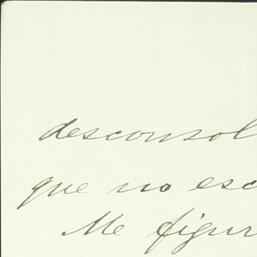 desconsol
que no esc
Me figur